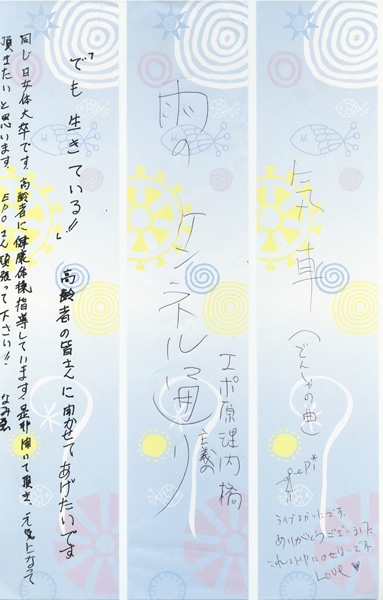 (でんしゃの曲)
ライブよかったです。
ありがとうございました。
LOVE ♥
雨の ケンネル通り
エポ原理内橋
主義の
「でも 生きている!!」 高齢者の皆さんに聞かせてあげたいです
同じ日女体大卒です。高齢者に健康体操指導しています!是非聞いて頂き、元気になって
頂きたいと思います。EPOさん頑張って下さい!!